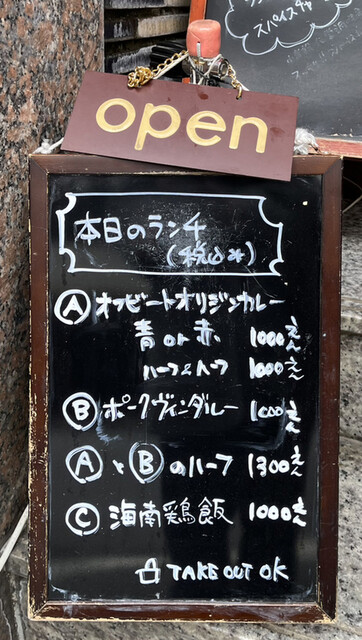 スパイスチャ
open
本日のランチ
(税込*)
Ⓐ オフビートオリジンカレー
青 or 赤 1000えん
ハーフ&ハーフ 1000えん
Ⓑ ポークヴィンダルー 1000えん
Ⓐ と Ⓑ のハーフ 1300えん
Ⓒ 海南鶏飯 1000えん
TAKE OUT OK